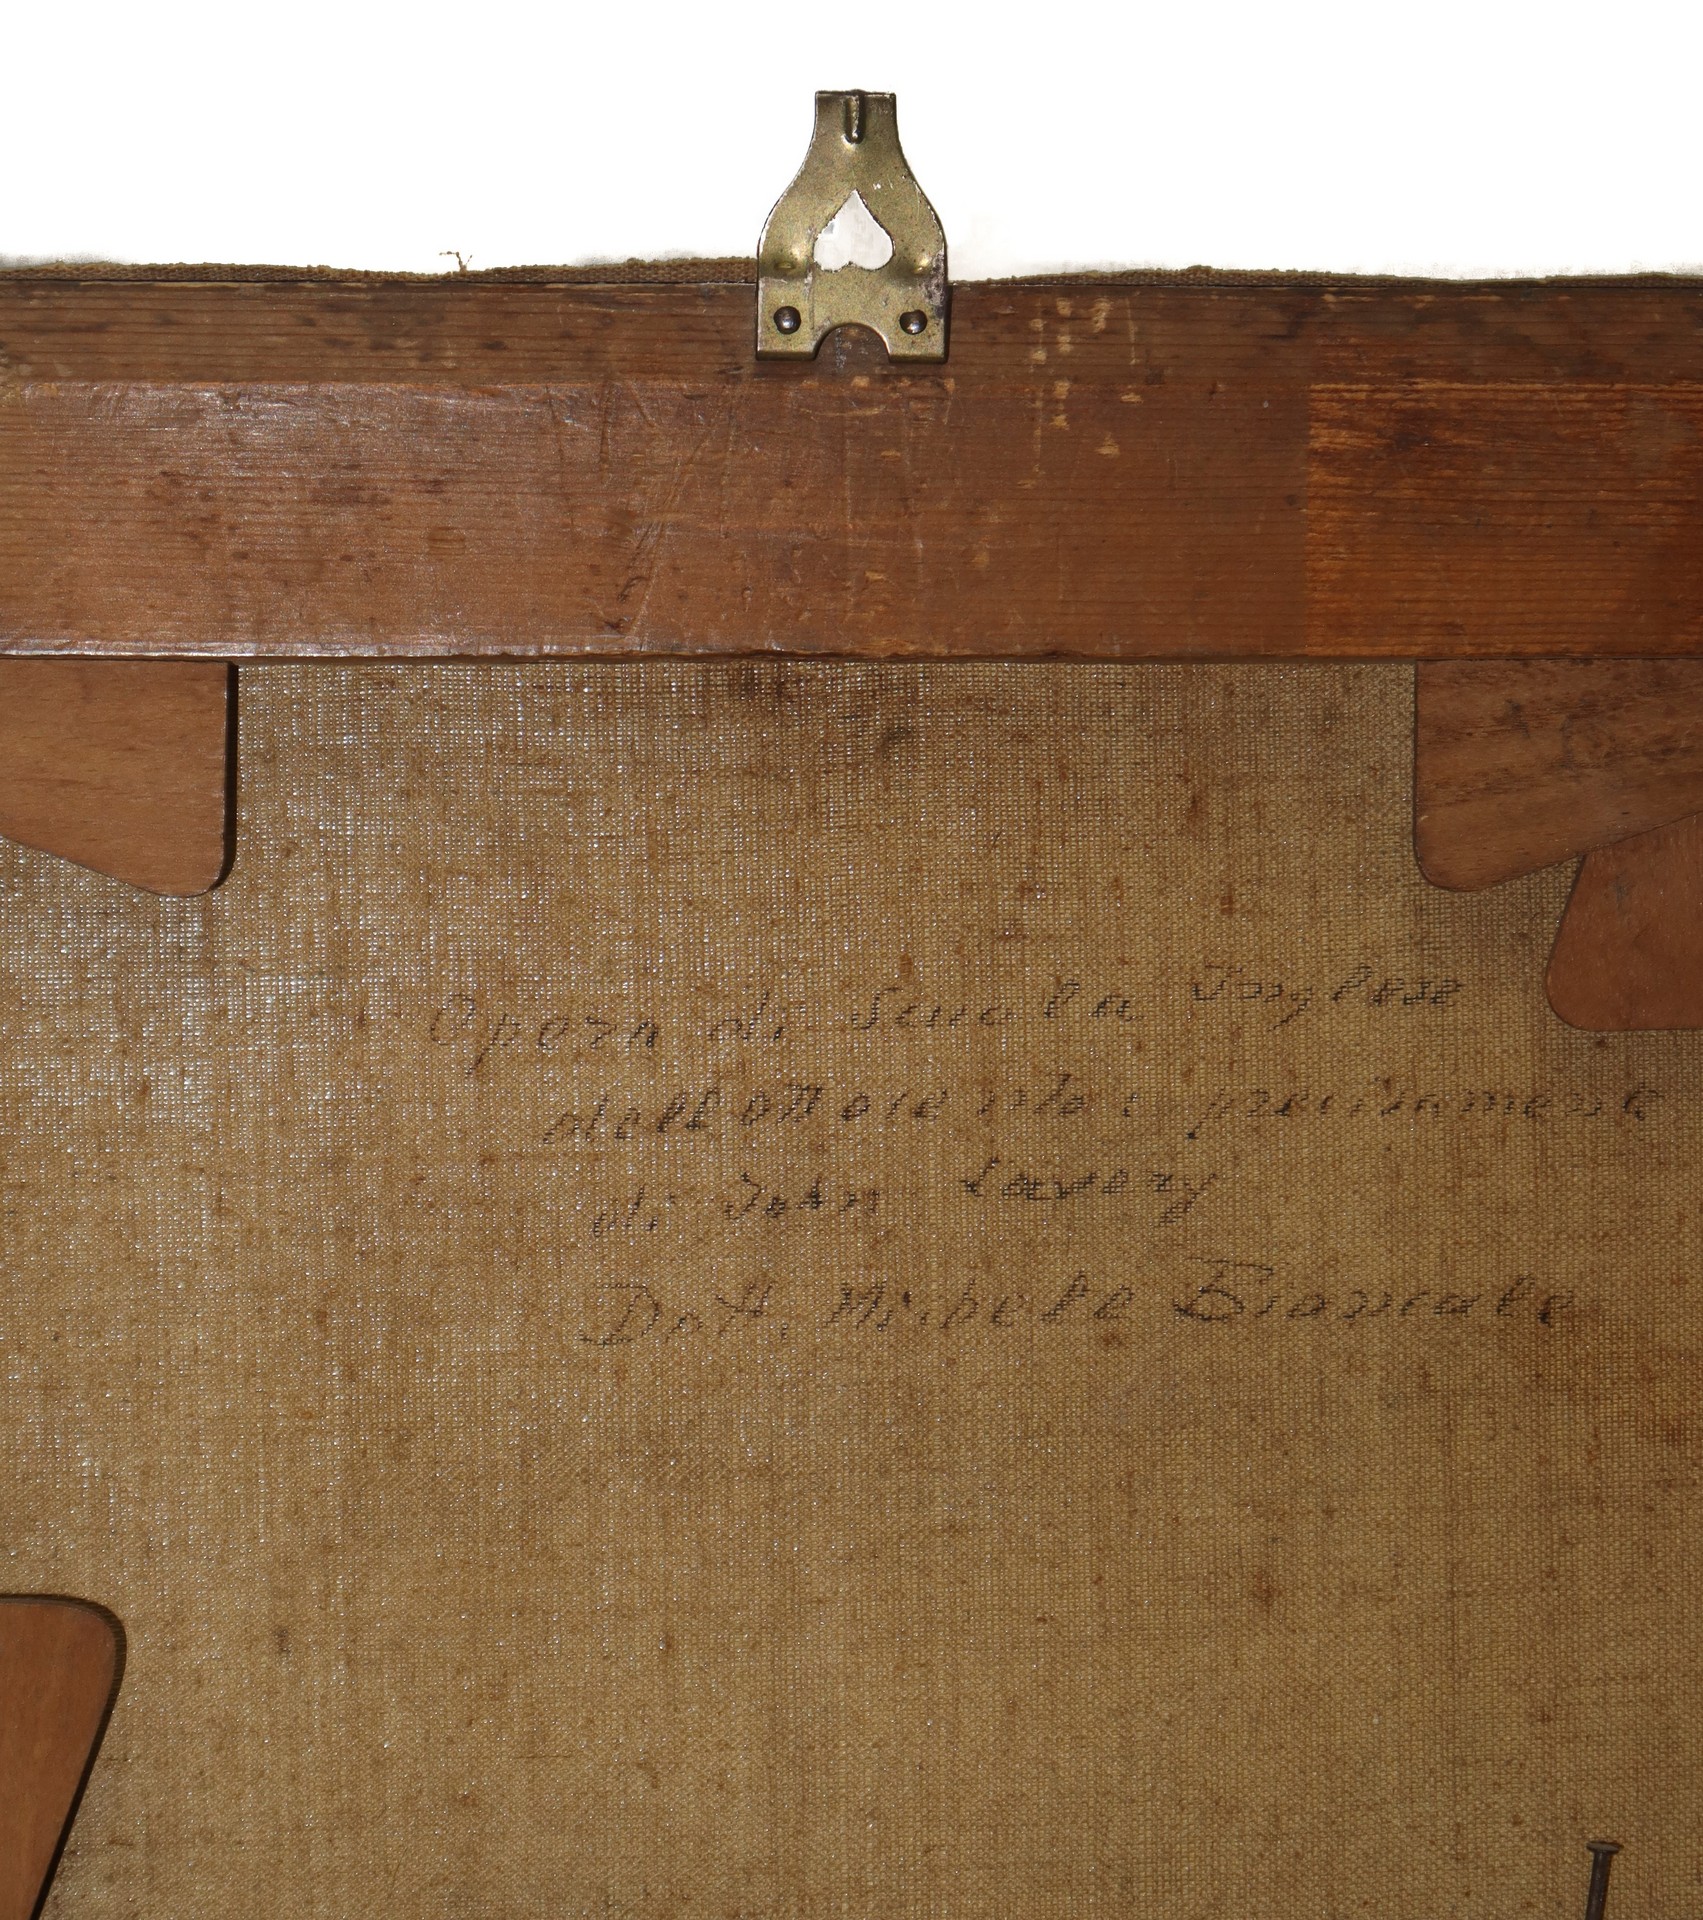 Opera di Scuola Inglese
dell'ottocento: precisamente
di John Lavery
Dott. Michele Biancale